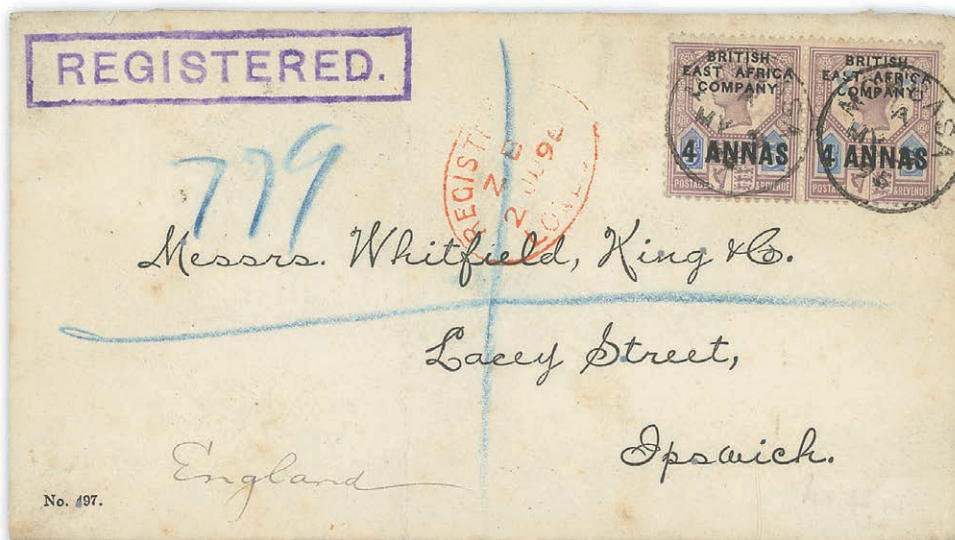 REGISTERED.
BRITISH
EAST AFRICA
COMPANY
4 ANNAS
POSTAGE
REVENUE
BRITISH
EAST AFRICA
COMPANY
4 ANNAS
POSTAGE
REVENUE
MOMBASA
A
MY
779
Messrs. Whitfield, King & Co.
Lacey Street,
Ipswich.
England
No. 497.